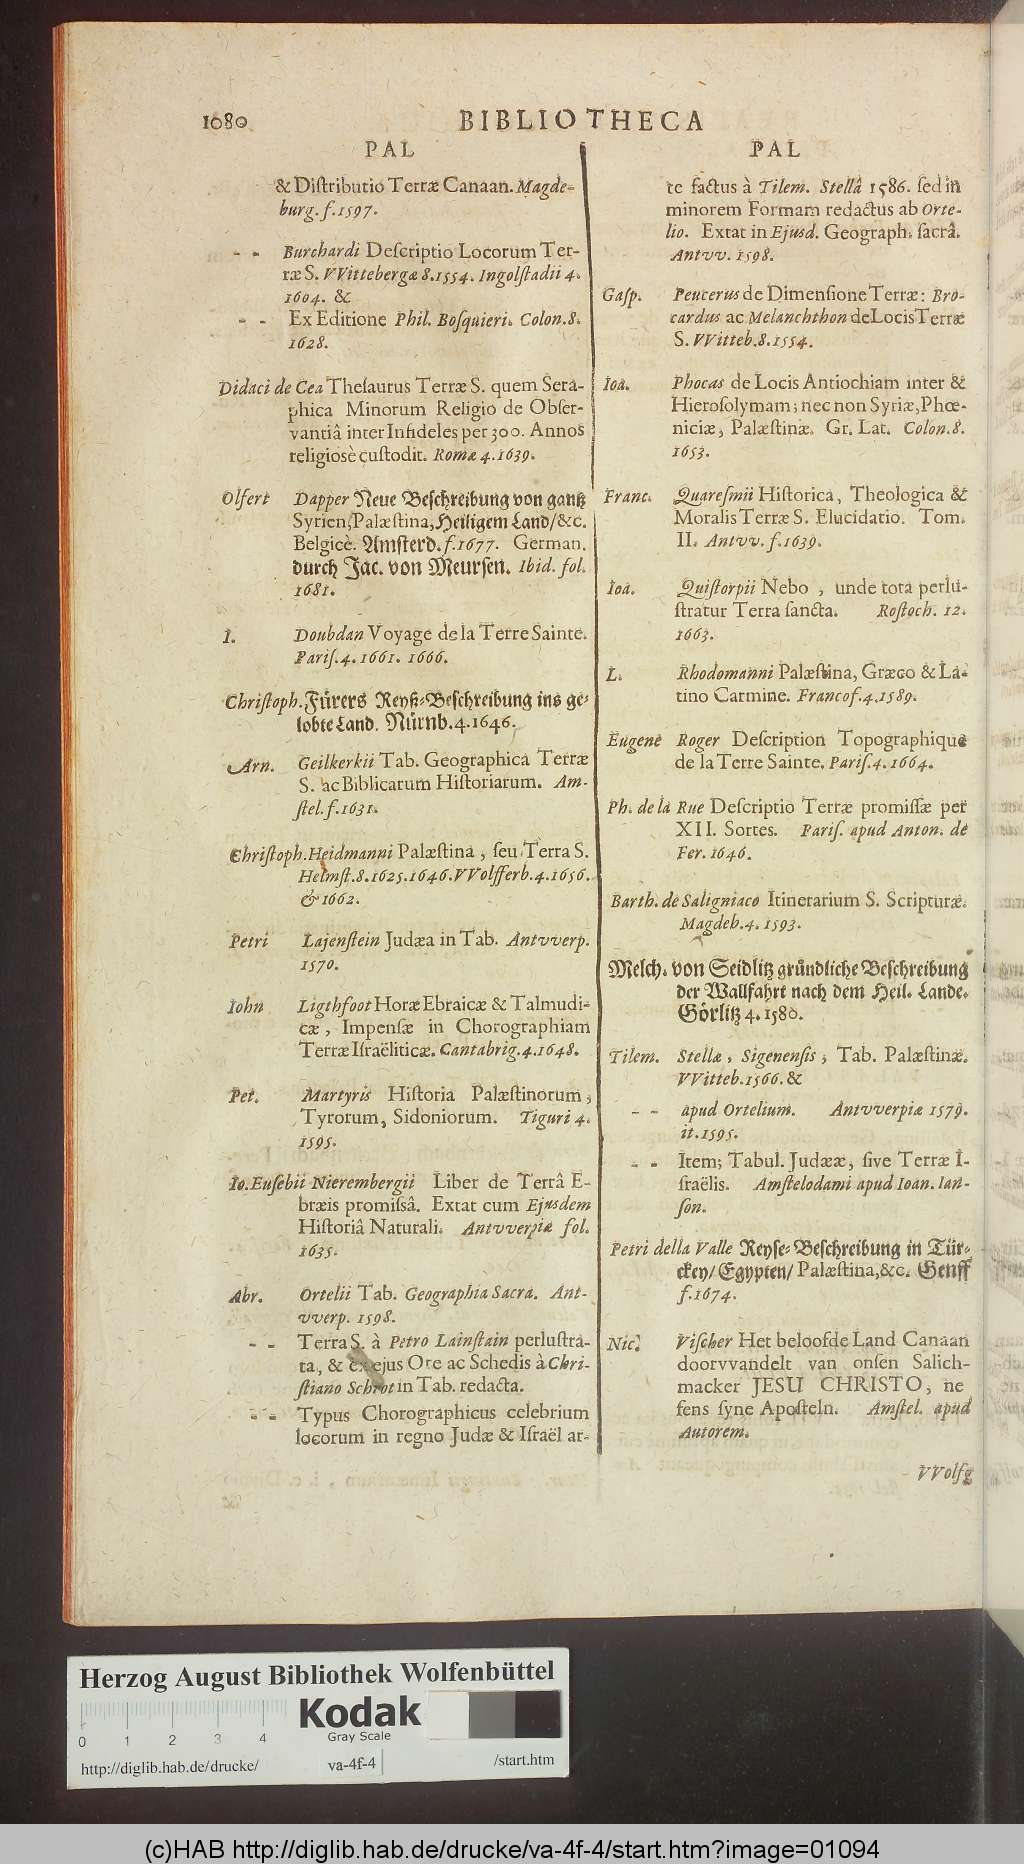 1680
BIBLIOTHECA
PAL
& Diſtributio Terræ Canaan. Magde-
burg. f. 1597.
- - Burchardi Deſcriptio Locorum Ter-
ræ S. VVittebergæ 8. 1554. Ingolſtadii 4.
1604. &
- - Ex Editione Phil. Boſquieri. Colon. 8.
1628.
Didaci de Cea Theſaurus Terræ S. quem Sera-
phica Minorum Religio de Obſer-
vantiâ inter Infideles per 300. Annos
religiosè cuſtodit. Romæ 4. 1639.
Olfert Dapper Neue Beſchreibung von gantz
Syrien, Palæſtina, Heiligem Land/ &c.
Belgicè. Amſterd. f. 1677. German.
durch Jac. von Meurſen. Ibid. fol.
1681.
I. Doubdan Voyage de la Terre Sainte.
Pariſ. 4. 1661. 1666.
Chriſtoph. Fürers Reyß-Beſchreibung ins ge-
lobte Land. Nürnb. 4. 1646.
Arn. Geilkerkii Tab. Geographica Terræ
S. ac Biblicarum Hiſtoriarum. Am-
ſtel. f. 1631.
Chriſtoph. Heidmanni Palæſtina, ſeu Terra S.
Helmſt. 8. 1625. 1646. VVolfferb. 4. 1656.
& 1662.
Petri Lajenſtein Judæa in Tab. Antvverp.
1570.
Iohn Ligthfoot Horæ Ebraicæ & Talmudi-
cæ, Impenſæ in Chorographiam
Terræ Iſraëliticæ. Cantabrig. 4. 1648.
Pet. Martyris Hiſtoria Palæſtinorum,
Tyrorum, Sidoniorum. Tiguri 4.
1595.
Io. Euſebii Nierembergii Liber de Terrâ E-
bræis promiſsâ. Extat cum Ejusdem
Hiſtoriâ Naturali. Antvverpiæ fol.
1635.
Abr. Ortelii Tab. Geographia Sacra. Ant-
vverp. 1598.
- - Terra S. à Petro Lainſtain perluſtra-
ta, & ex ejus Ore ac Schedis à Chri-
ſtiano Schrot in Tab. redacta.
- - Typus Chorographicus celebrium
locorum in regno Judæ & Iſraël ar-
PAL
te factus à Tilem. Stellâ 1586. ſed in
minorem Formam redactus ab Orte-
lio. Extat in Ejusd. Geograph. ſacrâ.
Antvv. 1598.
Gaſp. Peucerus de Dimenſione Terræ: Bro-
cardus ac Melanchthon de Locis Terræ
S. VVitteb. 8. 1554.
Ioa. Phocas de Locis Antiochiam inter &
Hieroſolymam; nec non Syriæ, Phœ-
niciæ, Palæſtinæ. Gr. Lat. Colon. 8.
1653.
Franc. Quareſmii Hiſtorica, Theologica &
Moralis Terræ S. Elucidatio. Tom.
II. Antvv. f. 1639.
Ioa. Quiſtorpii Nebo, unde tota perlu-
ſtratur Terra ſancta. Roſtoch. 12.
1663.
L. Rhodomanni Palæſtina, Græco & La-
tino Carmine. Francof. 4. 1589.
Eugene Roger Deſcription Topographique
de la Terre Sainte. Pariſ. 4. 1664.
Ph. de la Rue Deſcriptio Terræ promiſſæ per
XII. Sortes. Pariſ. apud Anton. de
Fer. 1646.
Barth. de Saligniaco Itinerarium S. Scripturæ.
Magdeb. 4. 1593.
Melch. von Seidlitz gründliche Beſchreibung
der Wallfahrt nach dem Heil. Lande.
Görlitz 4. 1580.
Tilem. Stellæ, Sigenenſis, Tab. Palæſtinæ.
VVitteb. 1566. &
- - apud Ortelium. Antvverpiæ 1579.
it. 1595.
- - Item; Tabul. Judææ, ſive Terræ I-
ſraëlis. Amſtelodami apud Ioan. Ian-
ſon.
Petri della Valle Reyſe-Beſchreibung in Tür-
ckey/ Egypten/ Palæſtina, &c. Genff
f. 1674.
Nic. Viſcher Het beloofde Land Canaan
doorvvandelt van onſen Salich-
macker JESU CHRISTO, ne
fens ſyne Apoſteln. Amſtel. apud
Autorem.
VVolfg
Herzog August Bibliothek Wolfenbüttel
0 1 2 3 4
Kodak
Gray Scale
http://diglib.hab.de/drucke/ va-4f-4 /start.htm
(c)HAB http://diglib.hab.de/drucke/va-4f-4/start.htm?image=01094